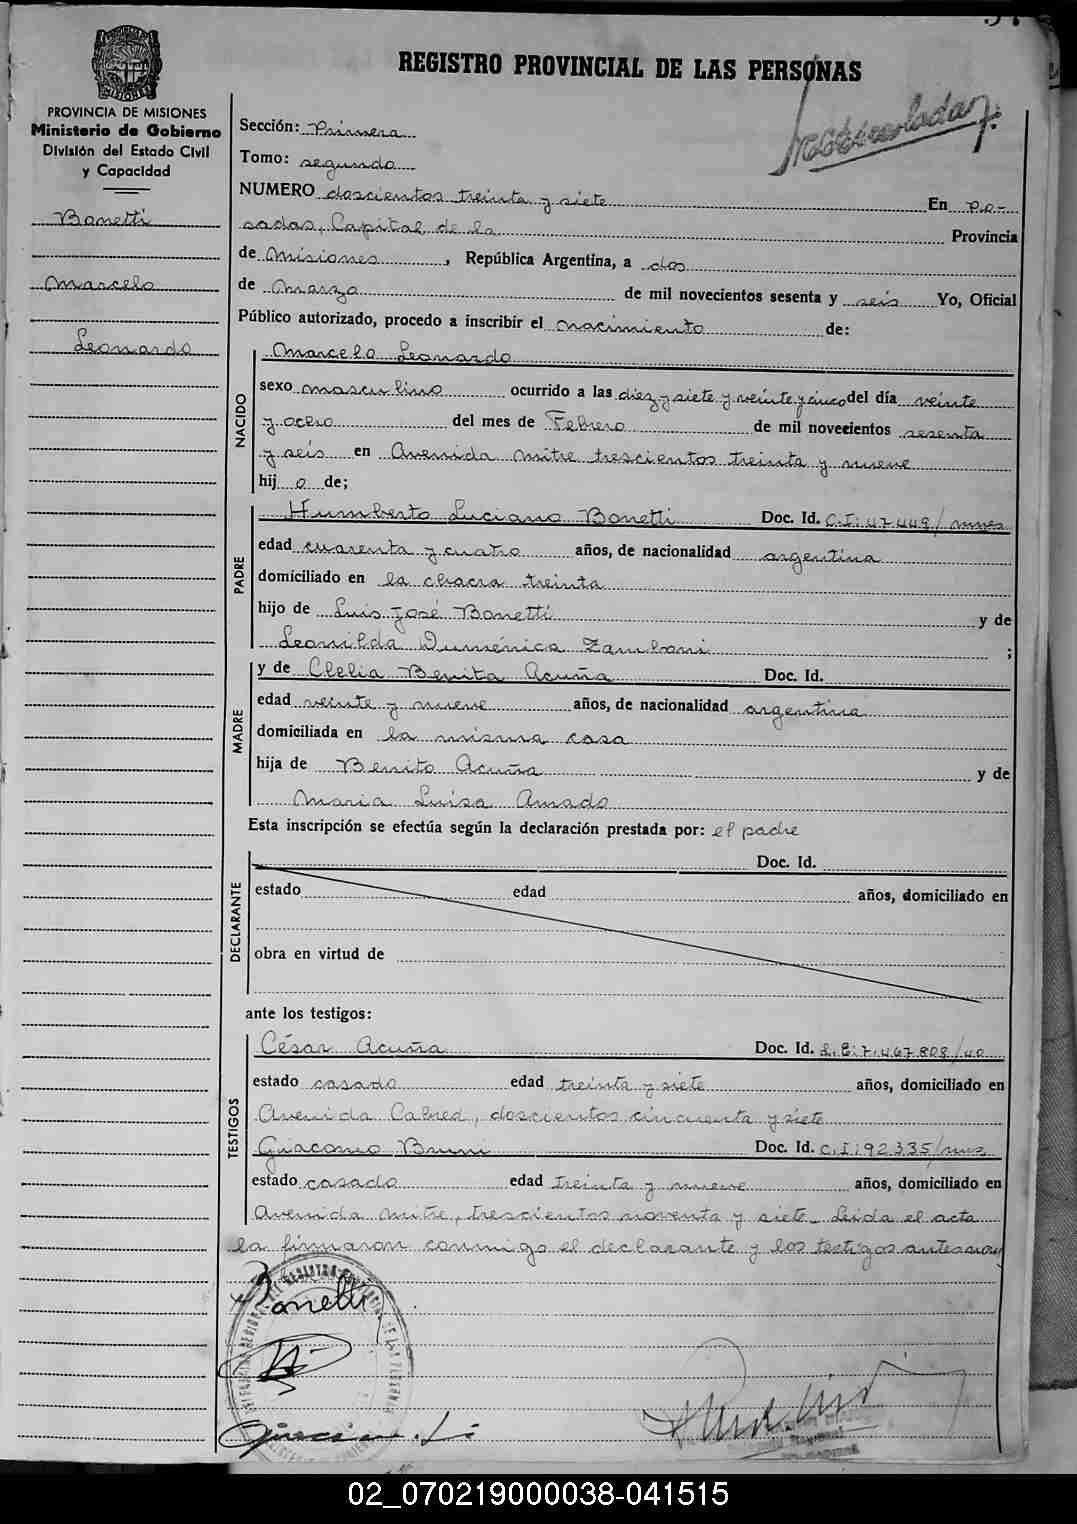 REGISTRO PROVINCIAL DE LAS PERSONAS
PROVINCIA DE MISIONES
Ministerio de Gobierno
División del Estado Civil
y Capacidad
Bonetti
Marcelo
Leonardo
Sección: Primera
Tomo: segundo
NUMERO doscientos treinta y siete En Po-
sadas, Capital de la Provincia
de Misiones, República Argentina, a dos
de Marzo de mil novecientos sesenta y seis Yo, Oficial
Público autorizado, procedo a inscribir el nacimiento de:
NACIDO
Marcelo Leonardo
sexo masculino ocurrido a las diez y siete y veinte y cinco del día veinte
y ocho del mes de Febrero de mil novecientos sesenta
y seis en Avenida mitre trescientos treinta y nueve
hij o de;
PADRE
Humberto Luciano Bonetti Doc. Id. C.I: 47.449/mnes
edad cuarenta y cuatro años, de nacionalidad argentina
domiciliado en la chacra treinta
hijo de Luis José Bonetti y de
Leonilda Duménica Zamboni ;
MADRE
y de Clelia Benita Acuña Doc. Id.
edad veinte y nueve años, de nacionalidad argentina
domiciliada en la misma casa
hija de Benito Acuña y de
Maria Luisa Amado
Esta inscripción se efectúa según la declaración prestada por: el padre
DECLARANTE
Doc. Id.
estado edad años, domiciliado en
obra en virtud de
ante los testigos:
TESTIGOS
César Acuña Doc. Id. L.E: 7.467.808/40
estado casado edad treinta y siete años, domiciliado en
Avenida Cabred, doscientos cincuenta y siete
Giacomo Bruni Doc. Id. C.I: 92.335/mnes
estado casado edad treinta y nueve años, domiciliado en
Avenida mitre, trescientos noventa y siete. Leida el acta
la firmaron conmigo el declarante y los testigos
Bonetti
02_070219000038-041515